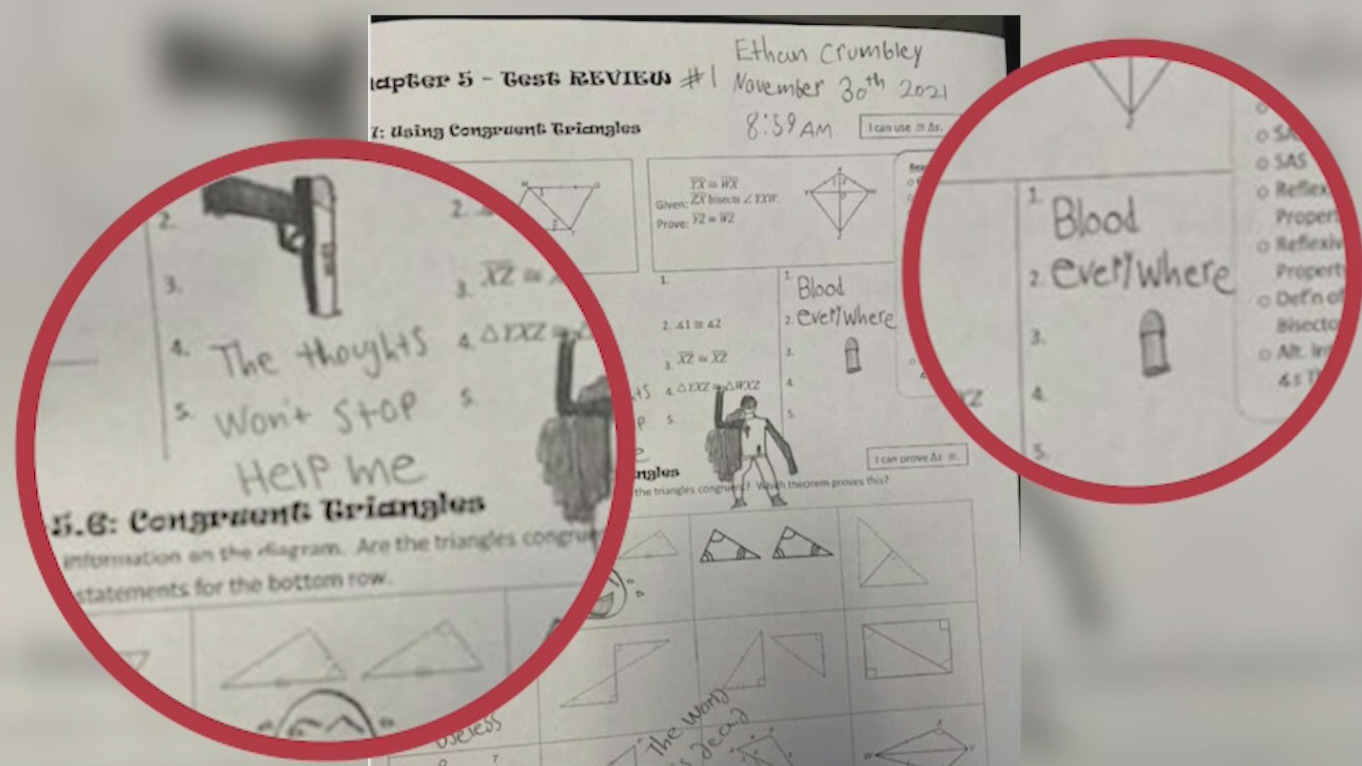 Ethan Crumbley
apter 5 - Test REVIEW #1
November 30th 2021
8:59 AM
: Using Congruent Triangles
I can use ≅ Δs.
YX ≅ WX
Given: ZX bisects ∠YXW
Prove: YZ ≅ WZ
1.
2. ∠1 ≅ ∠2
3. XZ ≅ XZ
4. ΔYXZ ≅ ΔWXZ
5.
1. Blood
2. everywhere
3.
4.
5.
I can prove Δs ≅.
ngles
the triangles congruent? Which theorem proves this?
useless
The World
dead
2.
3.
4. The thoughts
5. Won't Stop
Help me
2.
3. XZ ≅
4. ΔYXZ ≅
5.
5.6: Congruent Triangles
information on the diagram. Are the triangles congrue
statements for the bottom row.
1. Blood
2. everywhere
3.
4.
5.
SA
SAS
Reflex
Proper
Reflexiv
Propert
Def'n of
Bisecto
Alt. In